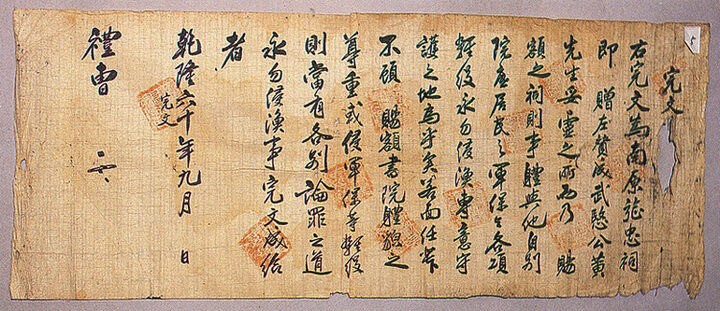 完文
右完文爲南原旌忠祠
卽 贈左贊成武愍公黃
先生妥靈之所而乃 賜
額之祠則事體與他自別
院底居民之軍保與各項
雜役永勿侵漁專意守
護之地爲乎矣若面任輩
不顧 賜額書院體貌之
尊重或侵軍保等雜役
則當有各別論罪之道
永勿侵漁事完文成給
者
乾隆六十年九月 日
完文
禮曹